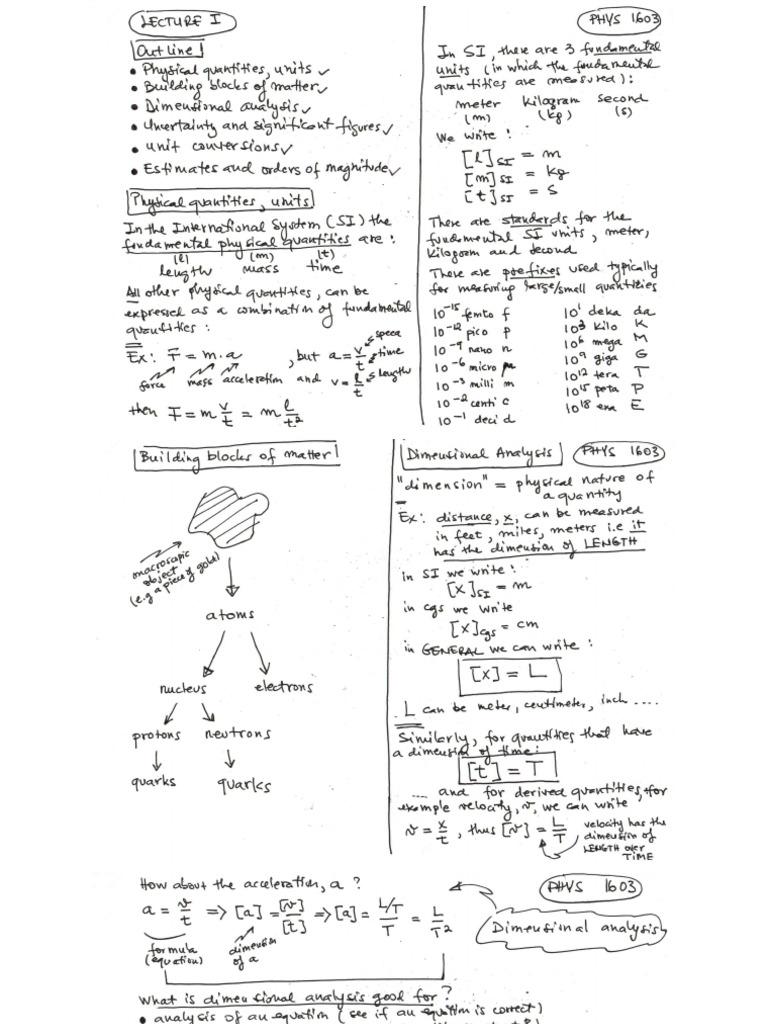 LECTURE I
Outline
• Physical quantities, units ✓
• Building blocks of matter ✓
• Dimensional analysis ✓
• Uncertainty and significant figures ✓
• unit conversions ✓
• Estimates and orders of magnitude ✓
Physical quantities, units
In the International System (SI) the
fundamental physical quantities are :
(l) (m) (t)
length mass time
All other physical quantities, can be
expressed as a combination of fundamental
quantities :
Ex: F = m.a , but a = v/t
speed
time
force mass acceleration and v = l/t
length
then F = m v/t = m l/t²
PHYS 1603
In SI, there are 3 fundamental
units (in which the fundamental
quantities are measured) :
meter kilogram second
(m) (kg) (s)
We write :
[l]SI = m
[m]SI = kg
[t]SI = s
There are standards for the
fundamental SI units, meter,
kilogram and second
There are prefixes used typically
for measuring large/small quantities
10⁻¹⁵ femto f 10¹ deka da
10⁻¹² pico p 10³ kilo K
10⁻⁹ nano n 10⁶ mega M
10⁻⁶ micro μ 10⁹ giga G
10⁻³ milli m 10¹² tera T
10⁻² centi c 10¹⁵ peta P
10⁻¹ deci d 10¹⁸ exa E
Building blocks of matter
macroscopic
object
(e.g a piece of gold)
atoms
nucleus electrons
protons neutrons
quarks quarks
Dimensional Analysis
PHYS 1603
"dimension" = physical nature of
a quantity
Ex: distance, x, can be measured
in feet, miles, meters i.e it
has the dimension of LENGTH
in SI we write :
[x]SI = m
in cgs we write
[x]cgs = cm
in GENERAL we can write :
[x] = L
L can be meter, centimeter, inch ....
Similarly, for quantities that have
a dimension of time:
[t] = T
.... and for derived quantities, for
example velocity, v, we can write
v = x/t , thus [v] = L/T
velocity has the
dimension of
LENGTH over
TIME
How about the acceleration, a ?
PHYS 1603
a = v/t => [a] = [v]/[t] => [a] = L/T/T = L/T²
Dimensional analysis
formula
(equation)
dimension
of a
What is dimensional analysis good for ?
• analysis of an equation (see if an equation is correct)